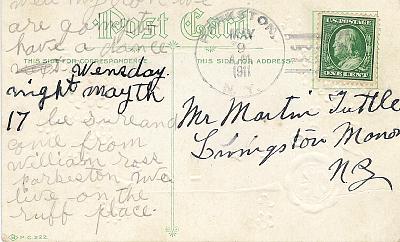 Post Card
well my dear we
are going to
have a dance
THIS SIDE FOR CORRESPONDENCE.
THIS SIDE IS FOR THE ADDRESS.
Wensday
night may th
17 be sure and
come from
william rose
parkeston we
live on the
ruff place.
MAY
9
1911
N.Y.
U.S. POSTAGE
ONE CENT
Mr Martin Tuttle
Livingston Manor
NY
P.C. 222